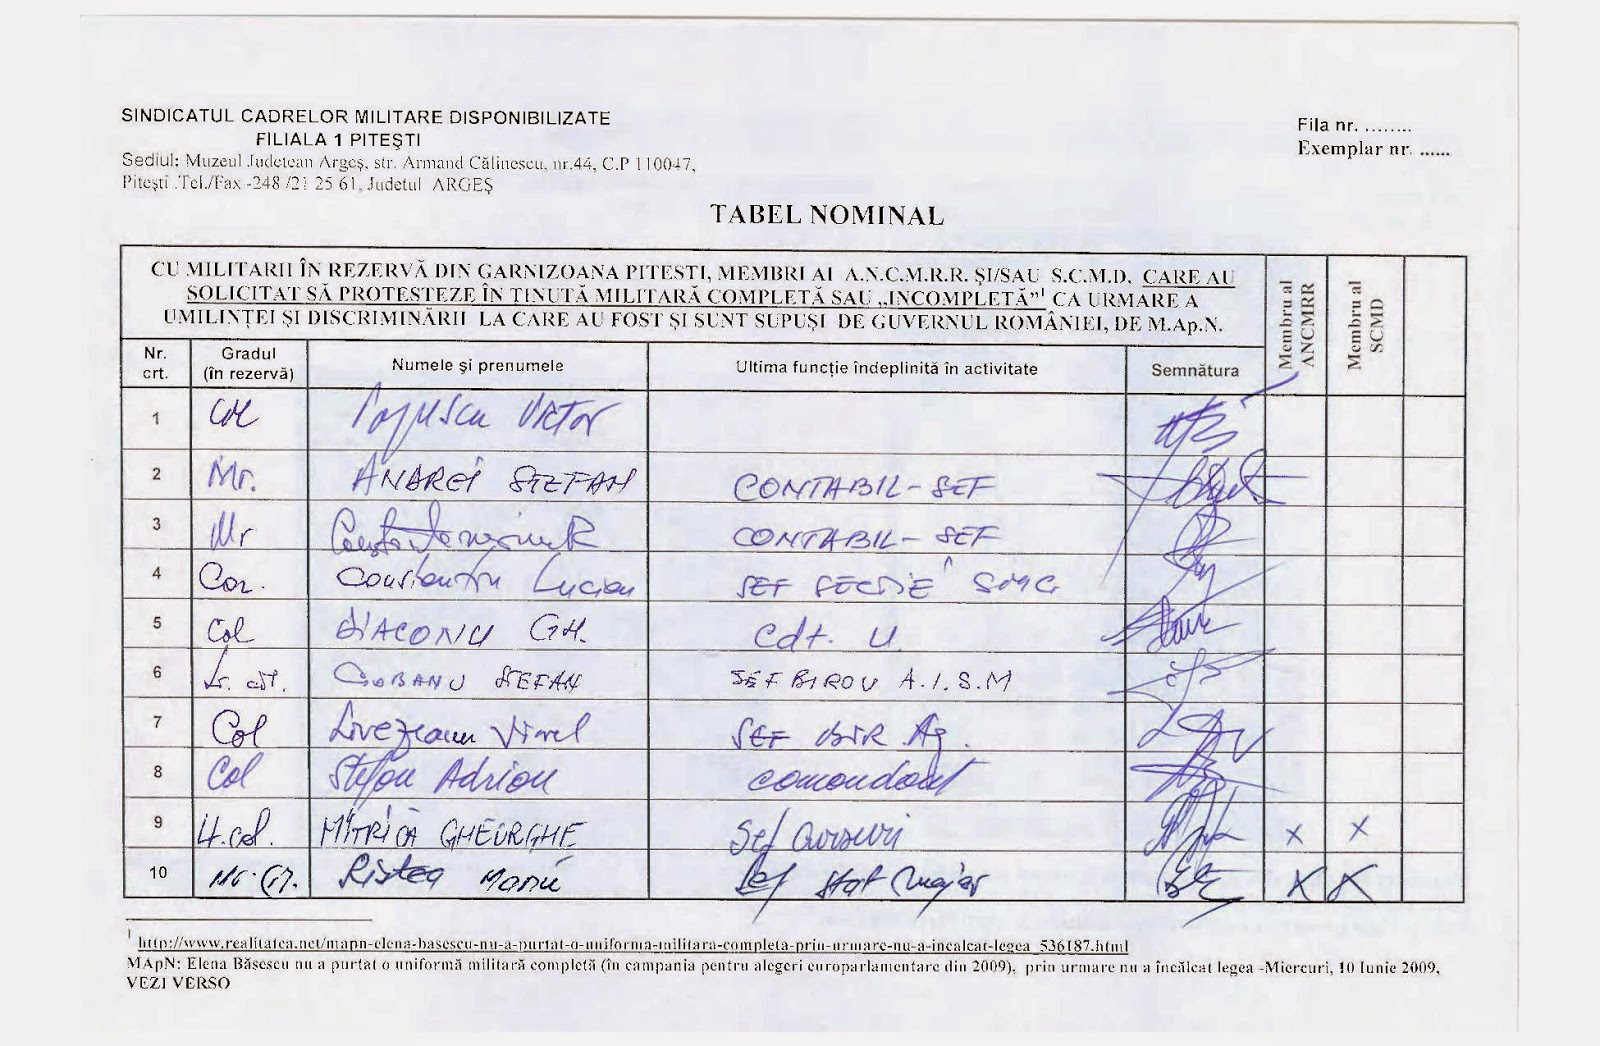 SINDICATUL CADRELOR MILITARE DISPONIBILIZATE
FILIALA 1 PITEŞTI
Sediul: Muzeul Judetean Argeş, str. Armand Călinescu, nr.44, C.P 110047,
Piteşti .Tel./Fax -248 /21 25 61, Judetul ARGEŞ
Fila nr. ........
Exemplar nr. ......
TABEL NOMINAL
CU MILITARII ÎN REZERVĂ DIN GARNIZOANA PITESTI, MEMBRI AI A.N.C.M.R.R. ŞI/SAU S.C.M.D. CARE AU
SOLICITAT SĂ PROTESTEZE ÎN TINUTĂ MILITARĂ COMPLETĂ SAU „INCOMPLETĂ”1 CA URMARE A
UMILINŢEI ŞI DISCRIMINĂRII LA CARE AU FOST ŞI SUNT SUPUŞI DE GUVERNUL ROMÂNIEI, DE M.Ap.N.
Membru al ANCMRR
Membru al SCMD
Nr. crt. Gradul (în rezervă) Numele şi prenumele Ultima funcţie îndeplinită în activitate Semnătura
1 Col Popescu Victor
2 Mr. ANDREI STEFAN CONTABIL-SEF
3 Mr CONTABIL-SEF
4 Col. Constantin Lucian SEF SECTIE
5 Col DIACONU GH. Cdt. U
6 CIOBANU STEFAN SEF BIROU A.I.S.M
7 Col Livezeanu Viorel SEF BIR Ag.
8 Col Stefan Adrian comandant
9 Lt. col. MITRICĂ GHEORGHE Sef Cursuri X X
10 Ristea Sef Stat Major X X
1 http://www.realitatea.net/mapn-elena-basescu-nu-a-purtat-o-uniforma-militara-completa-prin-urmare-nu-a-incalcat-legea_536187.html
MApN: Elena Băsescu nu a purtat o uniformă militară completă (în campania pentru alegeri europarlamentare din 2009), prin urmare nu a încălcat legea -Miercuri, 10 Iunie 2009,
VEZI VERSO